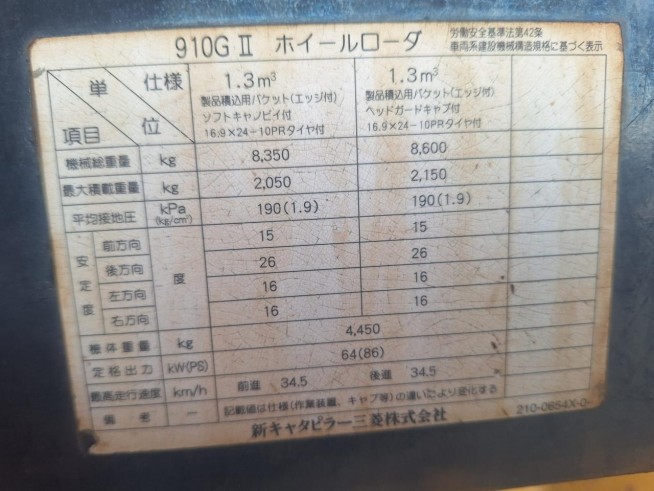 910G II ホイールローダ
労働安全基準法第42条
車両系建設機械構造規格に基づく表示
単位 仕様 項目
1.3m³
製品積込用バケット(エッジ付)
ソフトキャノピイ付
16.9×24-10PRタイヤ付
1.3m³
製品積込用バケット(エッジ付)
ヘッドガードキャブ付
16.9×24-10PRタイヤ付
機械総重量 kg 8,350 8,600
最大積載重量 kg 2,050 2,150
平均接地圧 kPa (kg/cm²) 190(1.9) 190(1.9)
安定度 度
前方向 15 15
後方向 26 26
左方向 16 16
右方向 16 16
機体重量 kg 4,450
定格出力 kW(PS) 64(86)
最高走行速度 km/h 前進 34.5 後進 34.5
備考 — 記載値は仕様(作業装置、キャブ等)の違いにより変化する
新キャタピラー三菱株式会社
210-0654X-0